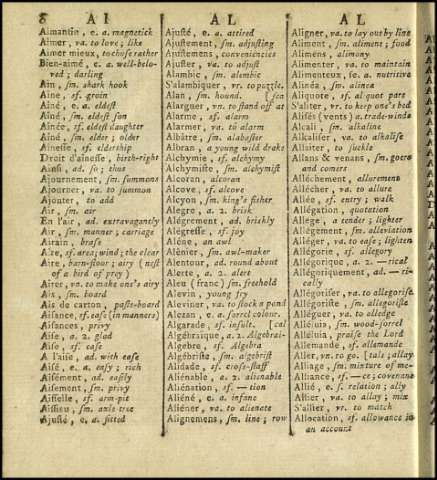 8 A I A L A L
Aimantin, e. a. magnetick
Aimer, va. to love; like
Aimer mieux, to chose rather
Bien-aimé, e. a. well-belo-
ved; darling
Ain, sm. shark hook
Aîne, sf. groin
Aîné, e. a. eldest
Aîné, sm. eldest son
Aînée, sf. eldest daughter
Aîné, sm. elder; older
Aînesse, sf. eldership
Droit d'aînesse, birth-right
Ainsi, ad. so; thus
Ajournement, sm. summons
Ajourner, va. to summon
Ajouter, to add
Air, sm. air
En l'air, ad. extravagantly
Air, sm. manner; carriage
Airain, brass
Aire, sf. area; wind; the clear
Aire, barn-floor; airy (nest
of a bird of prey)
Airer, vn. to make one's airy
Ais, sm. board
Ais de carton, paste-board
Aisance, sf. ease (in manners)
Aisances, privy
Aise, a. 2. glad
Aise, sf. ease
A l'aise, ad. with ease
Aisé, e. a. easy; rich
Aisément, ad. easily
Aisement, sm. privy
Aisselle, sf. arm-pit
Aissieu, sm. axle tree
Ajusté, e. a. fitted
Ajusté, e. a. attired
Ajustement, sm. adjusting
Ajustemens, conveniencies
Ajuster, va. to adjust
Alambic, sm. alembic
S'alambiquer, vr. to puzzle,
Alan, sm. hound. [sin
Alarguer, vn. to stand off at
Alarme, sf. alarm
Alarmer, va. to alarm
Albâtre, sm. alabaster
Albran, a young wild drake
Alchymie, sf. alchymy
Alchymiste, sm. alchymist
Alcoran, alcoran
Alcove, sf. alcove
Alcyon, sm. king's fisher
Alegre, a. 2. brisk
Alégrement, ad. briskly
Alégresse, sf. joy
Aléne, an awl
Alénier, sm. awl-maker
Alentour, ad. round about
Alerte, a. 2. alert
Aleu (franc) sm. freehold
Alevin, young fry
Aleviner, va. to stock a pond
Alezan, e. a. sorrel colour.
Algarade, sf. insult. [cal
Algébraique, a. 2. Algebrai-
Algebre, sf. Algebra
Algébriste, sm. algebrist
Alidade, sf. cross-staff
Aliénable, a. 2. alienable
Aliénation, sf. —tion
Aliéné, e. a. insane
Aliéner, va. to alienate
Alignemens, sm. line; row
Aligner, va. to lay out by line
Aliment, sm. aliment; food
Alimens, alimony
Alimenter, va. to maintain
Alimenteux, se. a. nutritive
Alinéa, sm. alinea
Aliquote, sf. al quot part
S'aliter, vr. to keep one's bed
Alisés (vents) a. trade-winds
Alcali, sm. alkaline
Alkaliser, va. to alkalise
Allaiter, to suckle
Allans & venans, sm. goers
and comers
Allêchement, allurement
Allécher, va. to allure
Allée, sf. entry; walk
Allégation, quotation
Allége, a tender; lighter
Allégement, sm. alleviation
Alléger, va. to ease; lighten
Allégorie, sf. allegory
Allégorique, a. 2. —rical
Allégoriquement, ad. —ri-
cally
Allégoriser, va. to allegorise
Allégoriste, sm. allegorist
Alléguer, va. to alledge
Alléluia, sm. wood-sorrel
Alléluia, praise the Lord
Allemande, sf. allemande
Aller, vn. to go. [tals; allay
Alliage, sm. mixture of me-
Alliance, sf. —ce; covenant
Allié, e. s. relation; ally
Allier, va. to allay; mix
S'allier, vr. to match
Allocation, sf. allowance in
an account